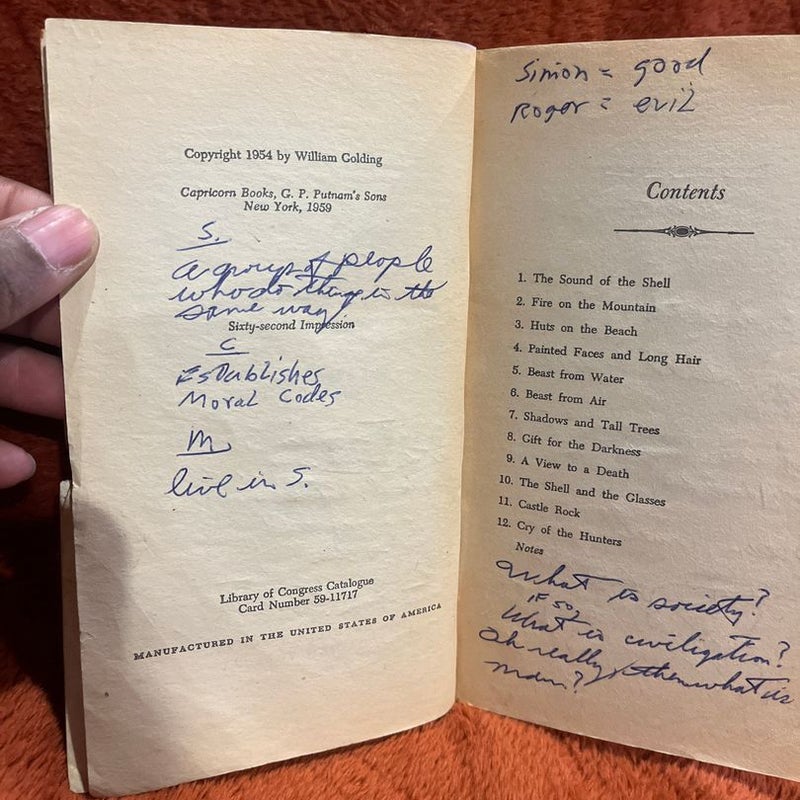 Copyright 1954 by William Golding
Capricorn Books, G. P. Putnam's Sons
New York, 1959
S.
a group of people
who do things in the
same way.
Sixty-second Impression
C
Establishes
Moral Codes
M
live in S.
Library of Congress Catalogue
Card Number 59-11717
MANUFACTURED IN THE UNITED STATES OF AMERICA
Simon = good
Roger = evil
Contents
1. The Sound of the Shell
2. Fire on the Mountain
3. Huts on the Beach
4. Painted Faces and Long Hair
5. Beast from Water
6. Beast from Air
7. Shadows and Tall Trees
8. Gift for the Darkness
9. A View to a Death
10. The Shell and the Glasses
11. Castle Rock
12. Cry of the Hunters
Notes
What is society?
IF SO,
What is civiligation?
Oh really, then what is
man?